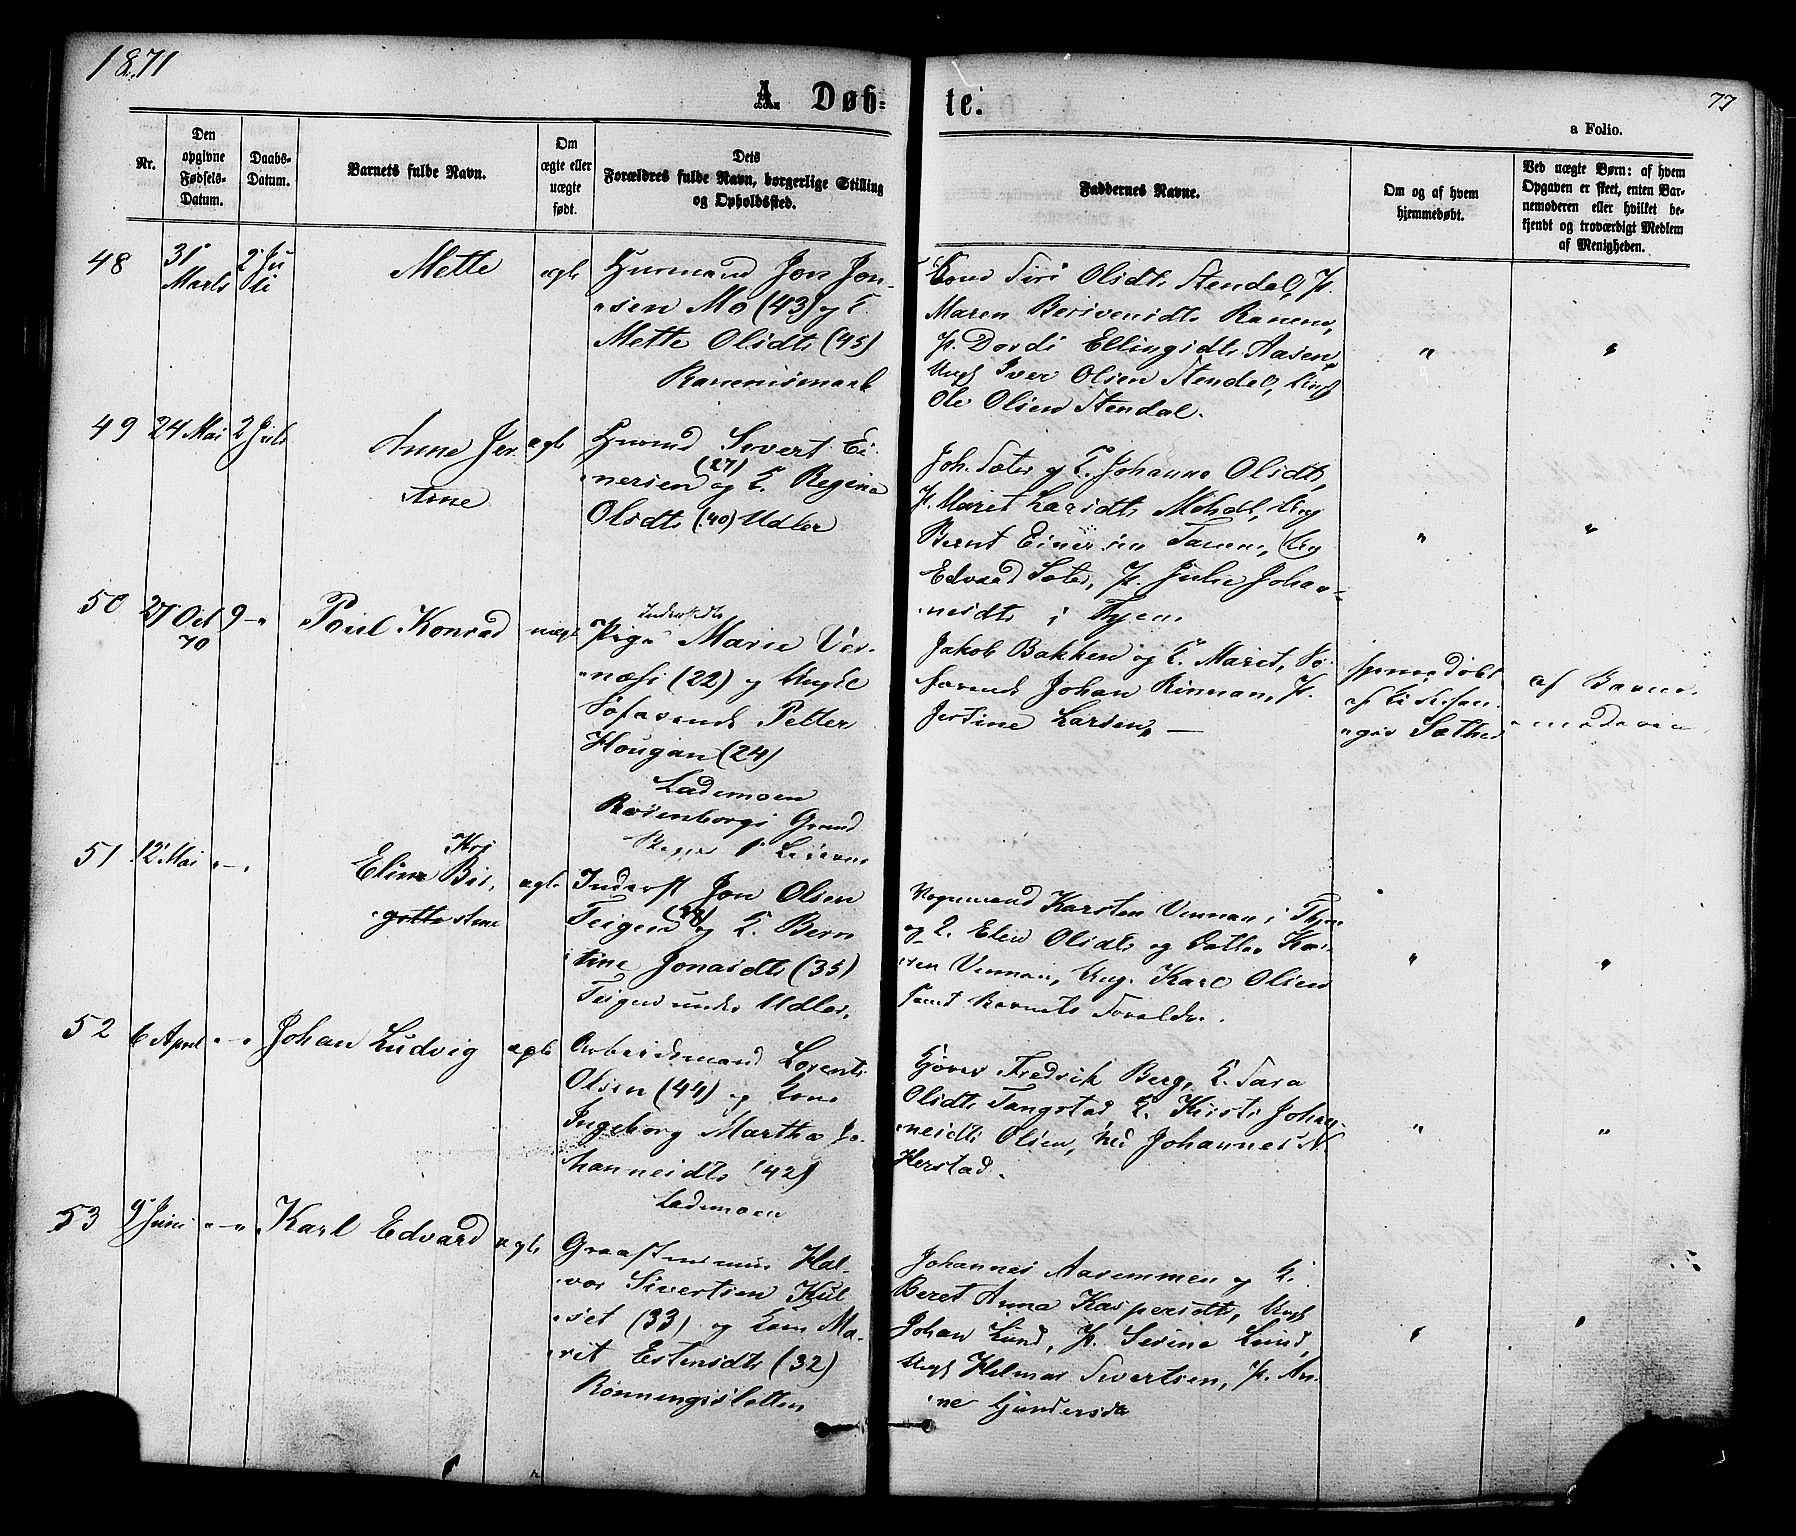 1871
77
A. Døb-
te.
a Folio.
Nr.
Den
opgivne
Fødsels-
Datum.
Daabs-
Datum.
Barnets fulde Navn.
Om
ægte eller
uægte
født.
Dets
Forældres fulde Navn, borgerlige Stilling
og Opholdssted.
Faddernes Navne.
Om og af hvem
hjemmedøbt.
Ved uægte Børn: af hvem
Opgaven er skeet, enten Bar-
nemoderen eller hvilket be-
kjendt og troværdigt Medlem
af Menigheden.
48
31
Marts
2 Ju
li
Mette
ægte
Huusmand Jon Jon-
sen Mo (43) og K.
Mette Olsdt (45)
Ranemsmark
Kone Siri Olsdt Stendal, P.
Maren Bersvendsdt Ranem,
P. Dordi Ellingsdt Aasen
Ungk Iver Olsen Stendal, Ungk
Ole Olsen Stendal.
"
"
49
24 Mai
2 Juli
Anne Jen
sine
ægte
Huusmd Sivert Ei-
nersen (27) og K. Regine
Olsdt (40) Udler
Joh. Sæter og K. Johanna Olsdt,
P. Marit Larsdt Moholt, Ung
Bernt Einersen Tanem, Ung
Edvard Sæter, P. Julie Johan-
nesdt i Thjen.
"
"
50
27 Oct
70
9 - "
Poul Konrad
uægte
Pige Marie Ver-
næs (22) og Ungkl
Søfarende Petter
Hougan (24)
Lademoen
Rosenborgs Grund
Jakob Bakken og K. Marit, Sø-
farende Johan Rinnan, P.
Jestine Larsen, —
hjemmedøbt
af Kirkesan-
ger Sæther
af Barne-
moderen
51
12 Mai
" - "
Eline Bir-
gitte
ægte
Inderst Jon Olsen
Teigen (38) og K. Bern
tine Jonasdt (35)
Teigen under Udler.
Vognmand Karsten Vinnan i Thjen
og K. Elen Olsdt og Datter Ka-
ren Vinnan, Ung. Karl Olsen
samt Barnets Forældre.
"
"
52
6 April
" - "
Johan Ludvig
ægte
Arbeidsmand Lorents
Olsen (44) og Kone
Ingeborg Martha Jo-
hannesdt (42)
Lademoen
Gjører Fredrik Berg, K. Sara
Olsdt Tangstad K. Kirsti Johan-
nesdt Olsen, Ung Johannes N.
Herstad.
"
"
53
9 Juni
" - "
Karl Edvard
ægte
Hal-
vor Sivertsen Kul-
set (33) og Kone Ma-
rit Estensdt (32)
Rønningsletten
Johannes Aasemmen og K.
Beret Anna Kaspersdt, Ungk
Johan Lund, P. Serine Lund,
Ungk Helmer Sivertsen, P. An-
ne Gundersdt
"
"